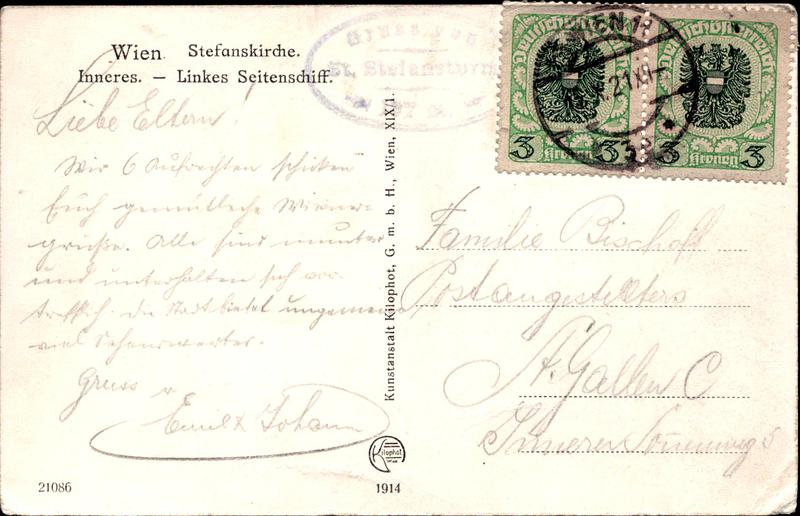 Wien Stefanskirche.
Inneres. — Linkes Seitenschiff.
Gruss vom
St. Stefansturm
Deutschösterreich
3 Kronen 3
Deutschösterreich
3 Kronen 3
WIEN 1
21 XI
Liebe Eltern!
Wir 6 Aufrechten schicken
Euch gemütliche Wiener-
grüße. Alle sind munter
und unterhalten sich vor-
trefflich. Die Stadt bietet ungemein
viel Sehenswertes.
Gruss
Emil & Johann
Kunstanstalt Kilophot, G. m. b. H., Wien, XIX/1.
Familie Bischoff
Postangestellters
St. Gallen C
Innerer Sonnenweg 5
Kilophot
21086
1914